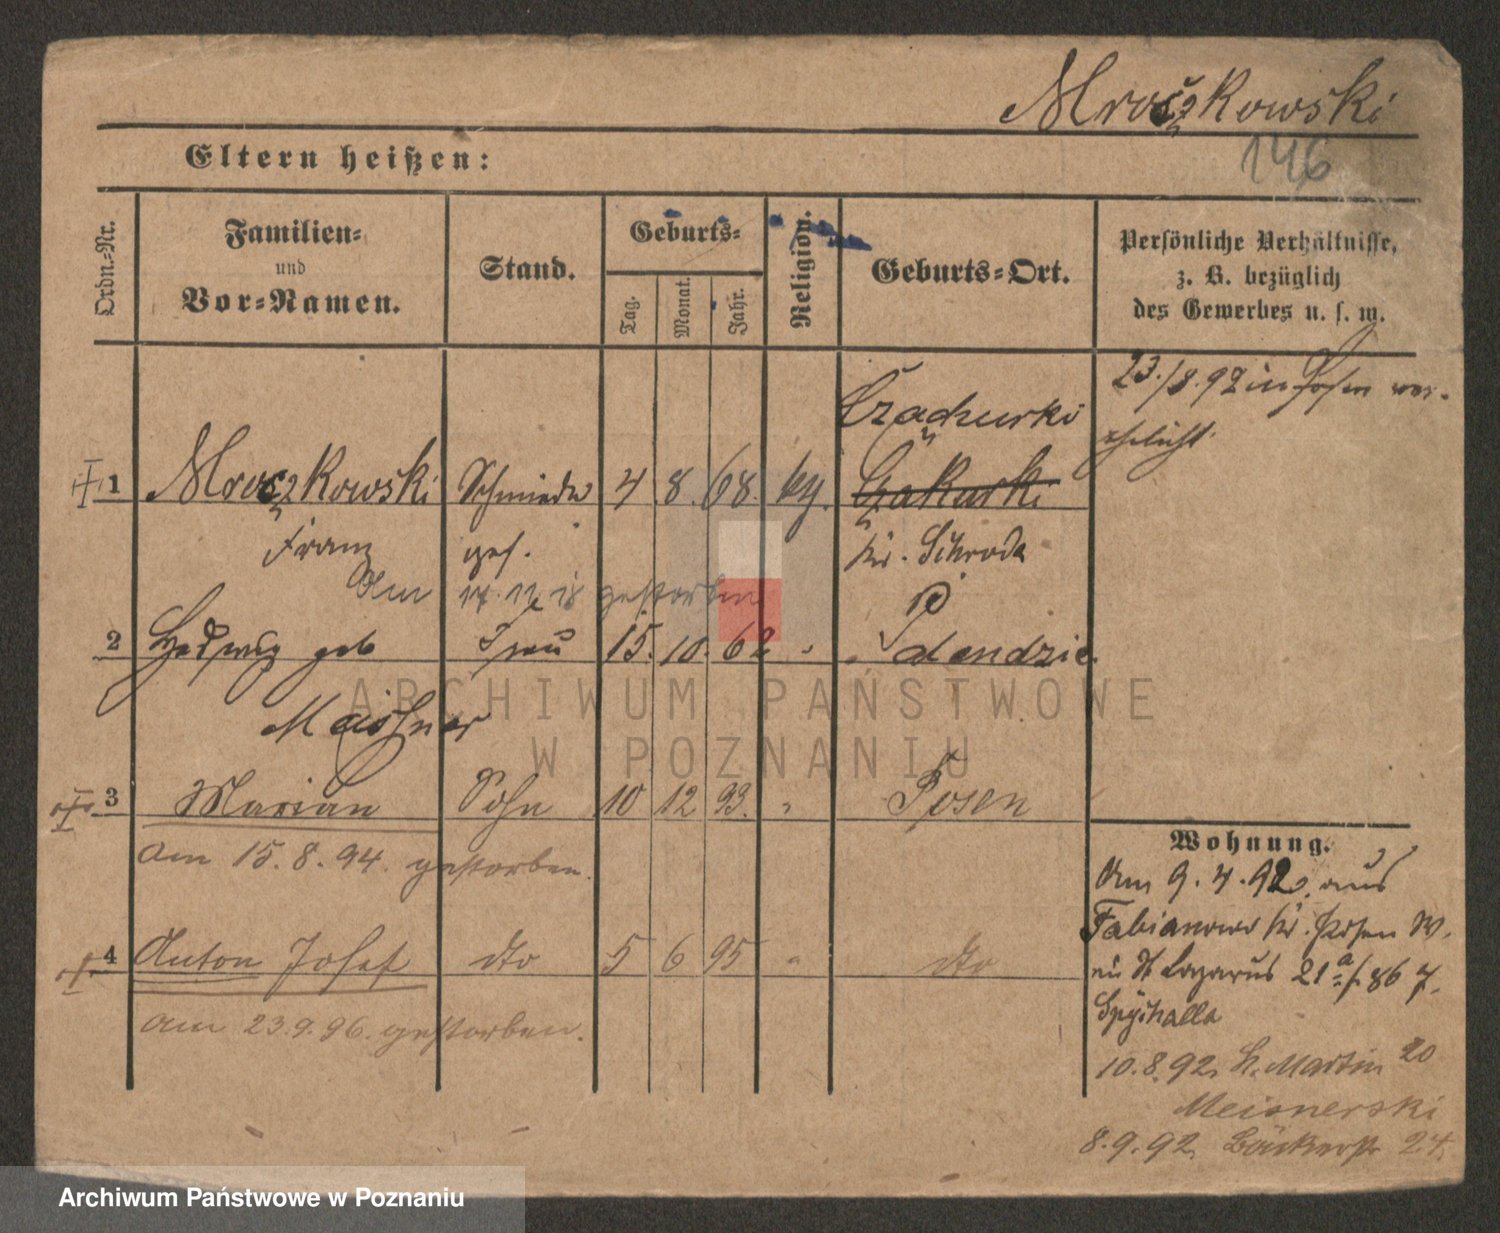 Mroczkowski
146
Eltern heißen:
Ordn.-Nr.
Familien-
und
Vor-Namen.
Stand.
Geburts-
Tag.
Monat.
Jahr.
Religion.
Geburts-Ort.
Persönliche Verhältnisse,
z. B. bezüglich
des Gewerbes u. s. w.
23./8.92 in Posen ver-
ehelicht.
Czachurki
1 Mroczkowski Schmiede 4 8. 68. Czakurki
Franz ges. Kr. Schroda
Am gestorben
2 Hedwig geb Frau 15. 10. 62 " Palendzie
Meissner
3 Marian Sohn 10 12 93. " Posen
am 15.8.94. gestorben.
4 Anton Josef dto 5 6 95 " dto
am 23.9.96. gestorben.
Wohnung.
Am 9.4.92 aus
Fabianowo Kr. Posen W.
St Lazarus 21a/86 7.
Spychalla
10.8.92. St. Martin 20
Meisnerski
8.9.92. Bäckerstr 24.
ARCHIWUM PAŃSTWOWE
W POZNANIU
Archiwum Państwowe w Poznaniu